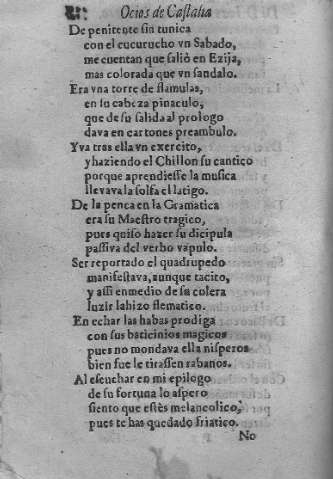 Ocios de Castalia
De penitente sin tunica
con el cucurucho vn Sabado,
me cuentan que saliò en Ezija,
mas colorada que vn sandalo.
Era vna torre de flamulas,
en su cabeza pinaculo,
que de su salida al prologo
dava en cartones preambulo.
Yva tras ella vn exercito,
y haziendo el Chillon su cantico
porque aprendiesse la musica
llevava la solfa el latigo.
De la penca en la Gramatica
era su Maestro tragico,
pues quiso hazer su dicipula
passiva del verbo vapulo.
Ser reportado el quadrupedo
manifestava, aunque tacito,
y assi enmedio de su colera
luzir la hizo flematico.
En echar las habas prodiga
con sus baticinios magicos
pues no mondava ella nisperos
bien fue le tirassen rabanos.
Al escuchar en mi epilogo
de su fortuna lo aspero
siento que estès melancolico,
pues te has quedado friatico.
No